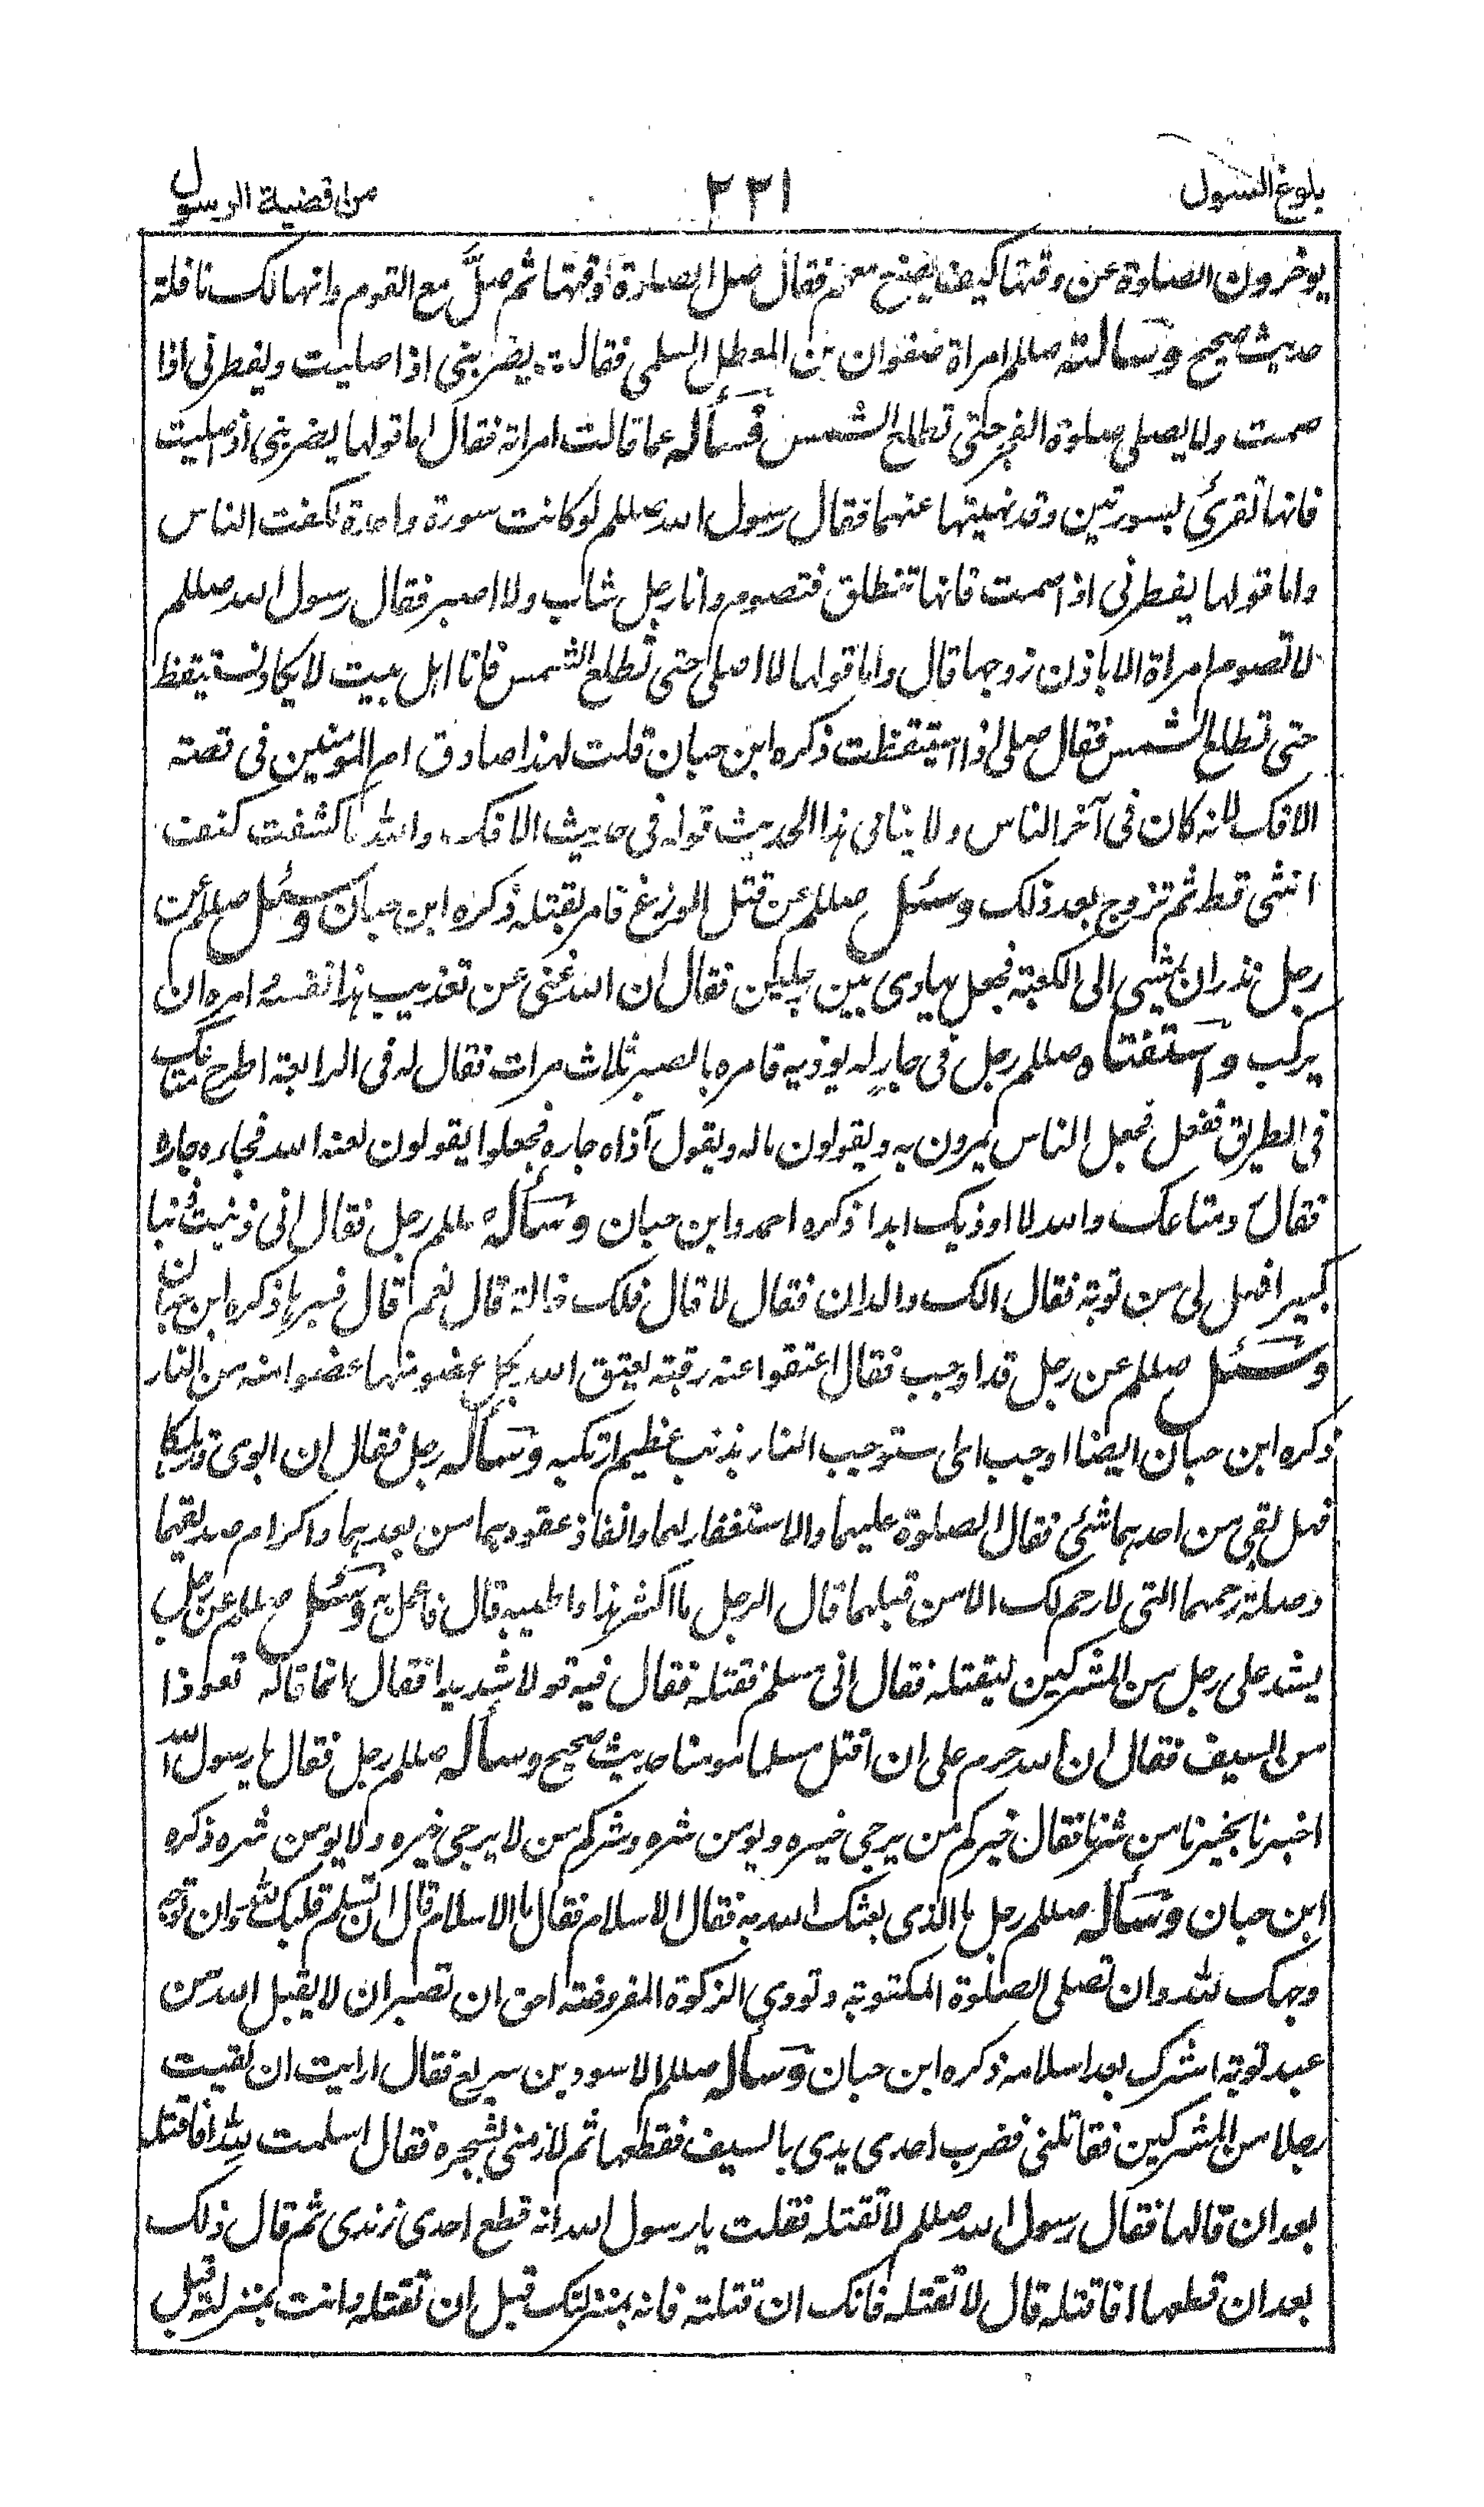 بلوغ السول
٢٢١
من اقضية الرسول
يوخرون الصلوة عن وقتها كيف يصنع معهم فقال صل الصلوة لوقتها ثم صلِّ مع القوم وانها لك نافلة
حديث صحيح وسألته صللم امراة صفوان بن المعطل السلمى فقالت يضربنى اذا صليت ويفطرنى اذا
صمت ولا يصلى صلوة الفجر حتى تطلع الشمس فسأله عما قالت امراته فقال اما قولها يضربنى اذا صليت
فانها تقرئ بسورتين وقد نهيتها عنهما فقال رسول الله صللم لو كانت سورة واحدة لكفت الناس
واما قولها يفطرنى اذا صمت فانها تنطلق فتصوم وانا رجل شاب ولا اصبر فقال رسول الله صللم
لا تصوم امراة الا باذن زوجها قال واما قولها لا اصلى حتى تطلع الشمس فانا اهل بيت لا يكاد نستيقظ
حتى تطلع الشمس فقال صلى اذا استيقظت ذكره ابن حبان قلت لهذا صادق ام المومنين فى قصته
الافك لانه كان فى آخر الناس ولا ينافى هذا الحديث قوله فى حديث الافك، والله ما كشفت كنف
انثى قط ثم تزوج بعد ذلك وسئل صللم عن قتل الوزغ فامر بقتله ذكره ابن حبان وسئل صللم عن
رجل نذر ان يمشى الى الكعبة فجعل يهادى بين رجلين فقال ان الله غنى عن تعذيب هذا نفسه امره ان
يركب واستفتاه صللم رجل فى جارٍ له يوذيه فامره بالصبر ثلاث مرات فقال له فى الرابعة اطرح متاعك
فى الطريق ففعل فجعل الناس يمرون به ويقولون ماله ويقول آذاه جاره فجعلوا يقولون لعنه الله فجاءه جاره
فقال رد متاعك والله لا اوذيك ابدا ذكره احمد وابن حبان وسأله صللم رجل فقال انى اذنبت ذنبا
كبيرا فهل لى من توبة فقال الك والدان فقال لا قال فلك خالة قال نعم قال فبرها ذكره ابن حبان
وسئل صللم عن رجل قد اوجب فقال اعتقوا عنه رقبة يعتق الله بكل عضو منها عضوا منه من النار
ذكره ابن حبان ايضا اوجب اى استوجب النار بذنب عظيم ارتكبه وسأله رجل فقال ان ابوى قد هلكا
فهل بقى من احدهما شئ فقال الصلوة عليهما والاستغفار لهما وانفاذ عقودهما من بعدهما واكرام صديقهما
وصلة رحمهما التى لا رحم لك الا من قبلهما قال الرجل ما اكثر هذا واطيبه قال فاعمل به وسئل صللم عن رجل
يشد على رجل من المشركين ليقتله فقال انى مسلم فقتله فقال فيه قولا شديدا فقال انما قاله تعوذا
من السيف فقال ان الله حرم على ان اقتل مسلما مومنا حديث صحيح وسأله صللم رجل فقال يا رسول الله
اخبرنا بخيرنا من شرنا فقال خيركم من يرجى خيره ويومن شره وشركم من لا يرجى خيره ولا يومن شره ذكره
ابن حبان وسأله صللم رجل ما الذى بعثك الله به فقال الاسلام فقال ما الاسلام قال ان تسلم قلبك لله وان توجه
وجهك لله وان تصلى الصلوة المكتوبة وتودى الزكوة المفروضة ان لا يقبل الله من
عبد توبة اشرك بعد اسلامه ذكره ابن حبان وسأله صللم الاسود بن سريع فقال ارايت ان لقيت
رجلا من المشركين فقاتلنى فضرب احدى يدى بالسيف فقطعها ثم لاذ منى بشجره فقال اسلمت لله افاقتله
بعد ان قالها فقال رسول الله صللم لا تقتله فقلت يا رسول الله انه قطع احدى زندى ثم قال ذلك
بعد ان قطعها افاقتله قال لا تقتله فانك ان قتلته فانه بمنزلتك قبل ان تقتله وانت بمنزلته قبل